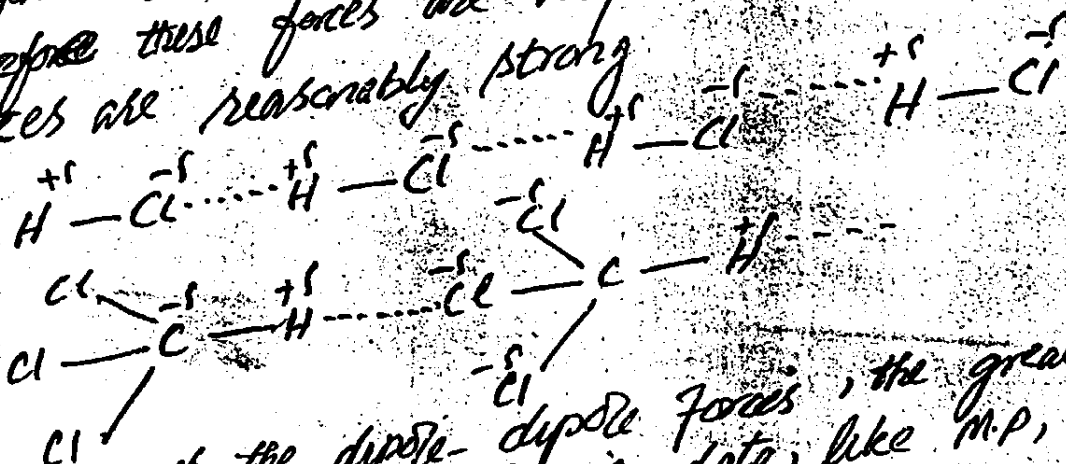 these forces are
are reasonably strong
+δ -δ +δ -δ +δ -δ +δ -δ
H — Cl ...... H — Cl ...... H — Cl ...... H — Cl
Cl -δ +δ -δ -δ Cl
Cl — C — H ...... Cl — C — H ......
Cl -δ Cl
the dipole-dipole forces, the
like M.P,